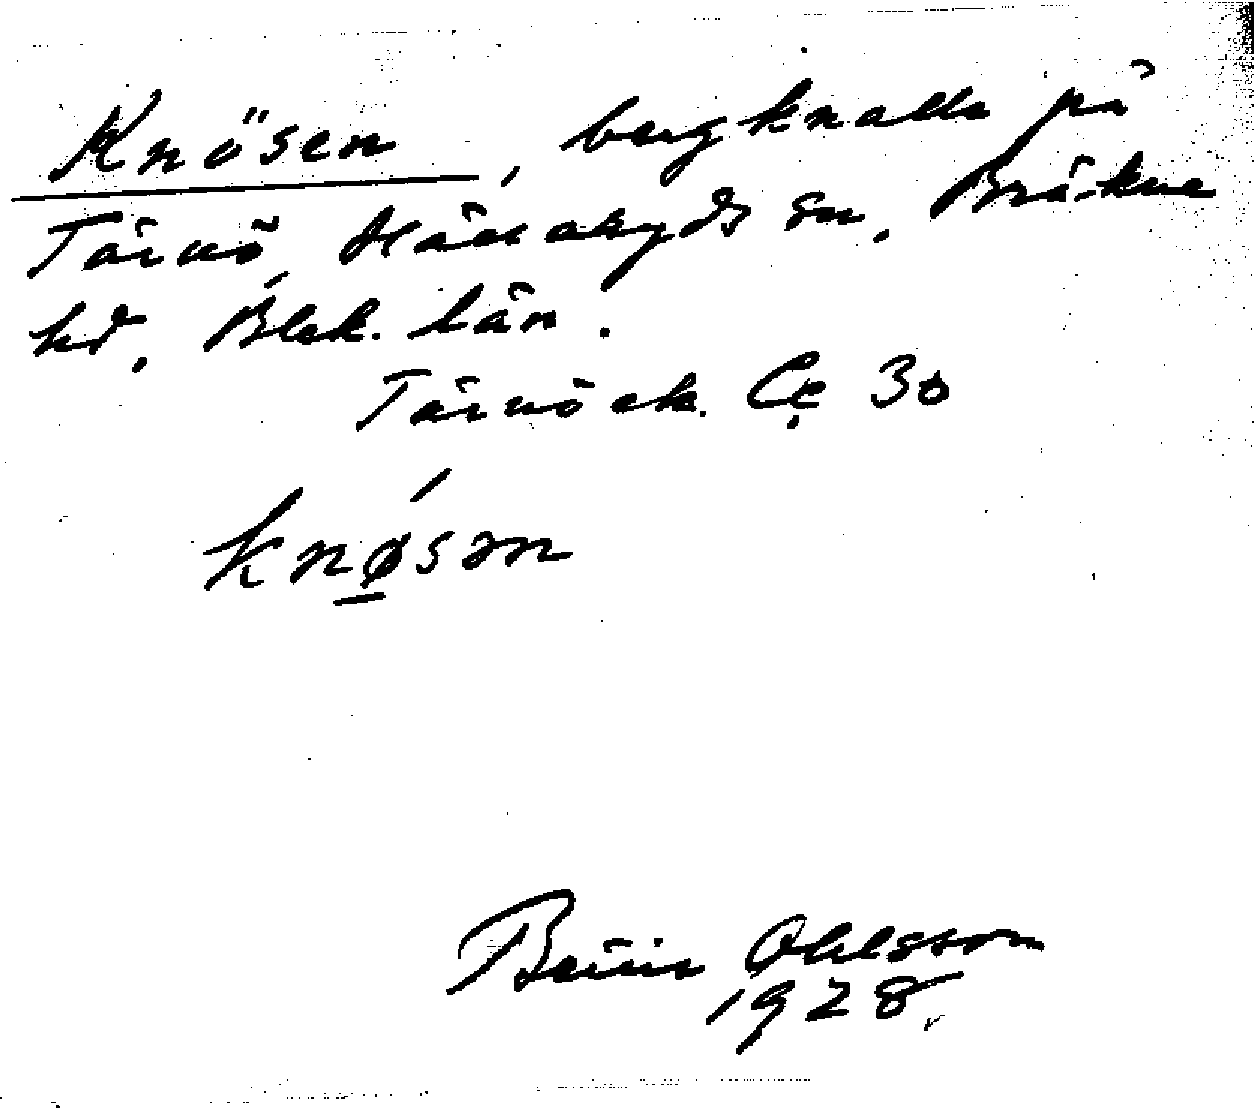 Knösen, bergknalle på
Tärnö, Hällaryds sn, Bräkne
hd, Blek. län.
Tärnö ek. Ce 30
knøsən
Ohlsson
1928